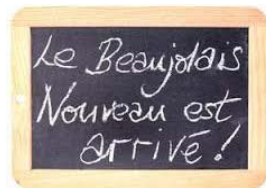 Le Beaujolais
Nouveau est
arrivé !